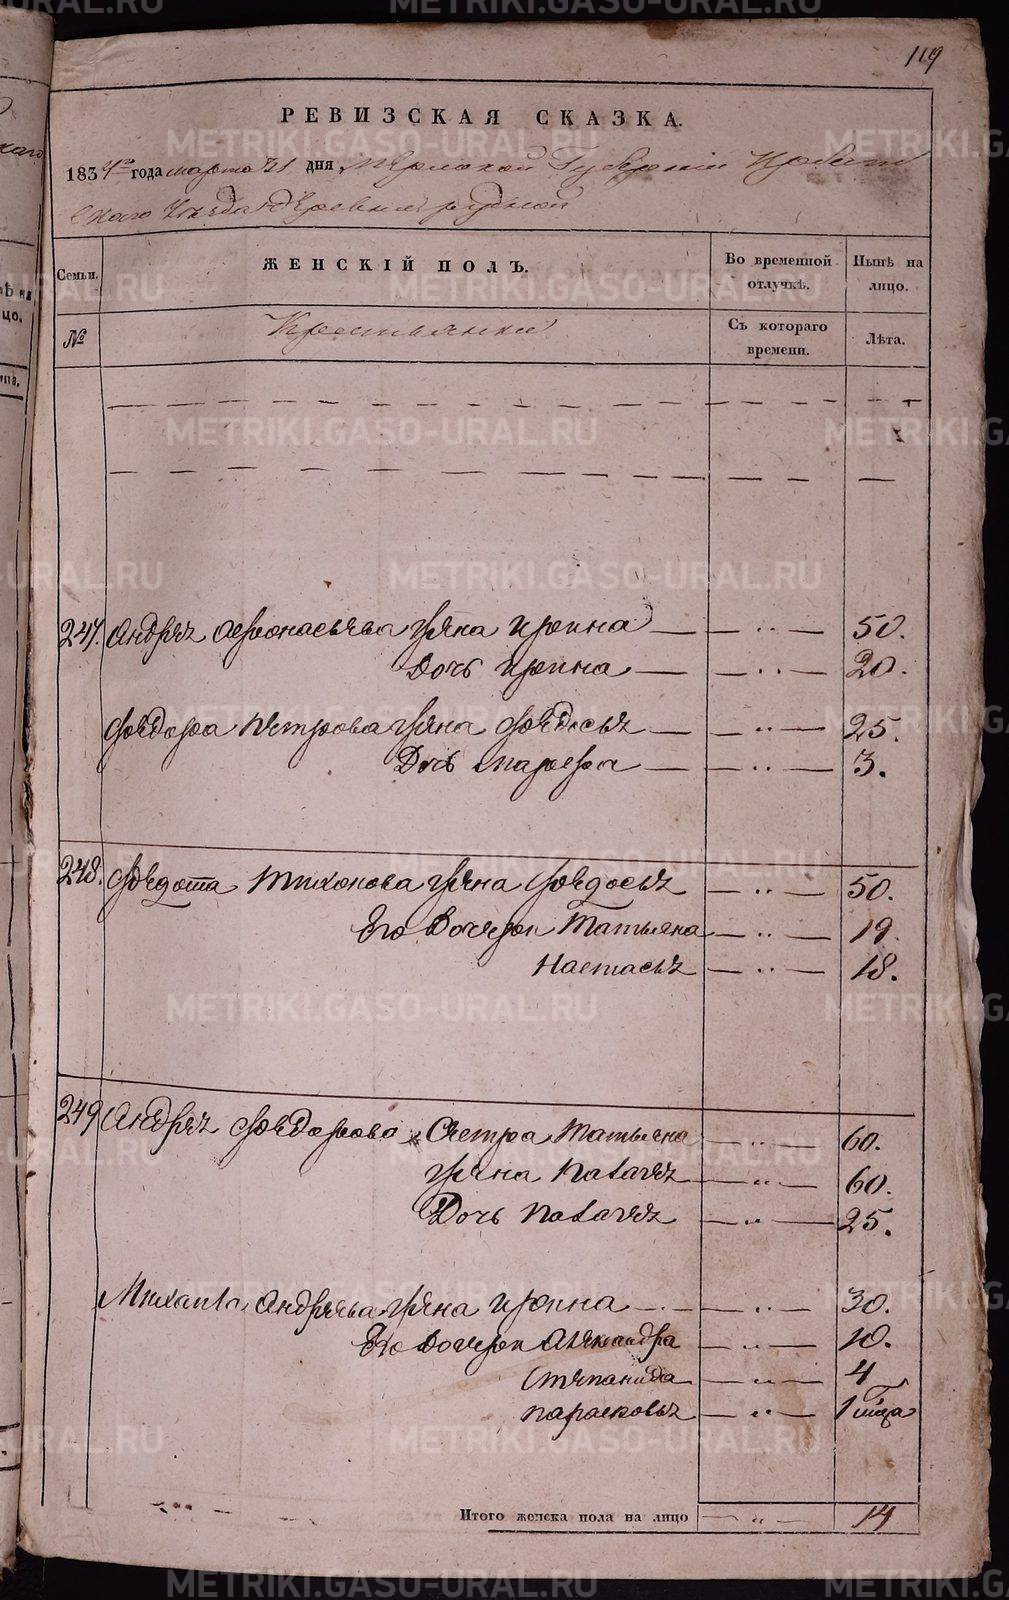 119
РЕВИЗСКАЯ СКАЗКА.
1834го года марта 21 дня Пермской Губернии Ирбит
скаго Уезда деревни рудной
Семьи. ЖЕНСКІЙ ПОЛЪ. Во временной отлучкѣ. Нынѣ на лицо.
№ Крестьянки Съ котораго времени. Лѣта.
247. Андрея Афонасьева жена ирина — „ — 50.
Дочь ирина — „ — 20.
Федора петрова жена федосья — „ — 25.
Дочь марфа — „ — 3.
248. Федота тихонова жена Федосья — „ — 50.
Его Дочери Татьяна — „ — 19.
Настасья — „ — 18.
249 Андрея федорова Сестра Татьяна — „ — 60.
жена палагея — „ — 60.
Дочь палагея — „ — 25.
Михаила андреева жена ирина — „ — 30.
Его Дочери Александра — „ — 10.
Степанида — „ — 4
парасковья — „ — 1 года
Итого женска пола на лицо — „ — 14
METRIKI.GASO-URAL.RU